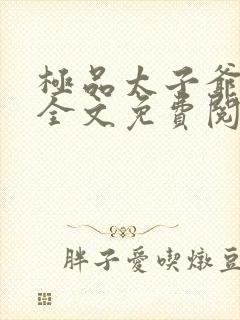 極品太子爺
全文免費閱
胖子愛喫燉豆